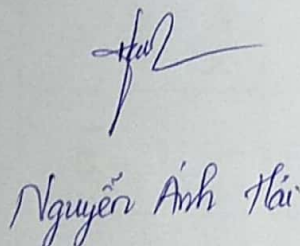 Nguyễn Ánh Hải